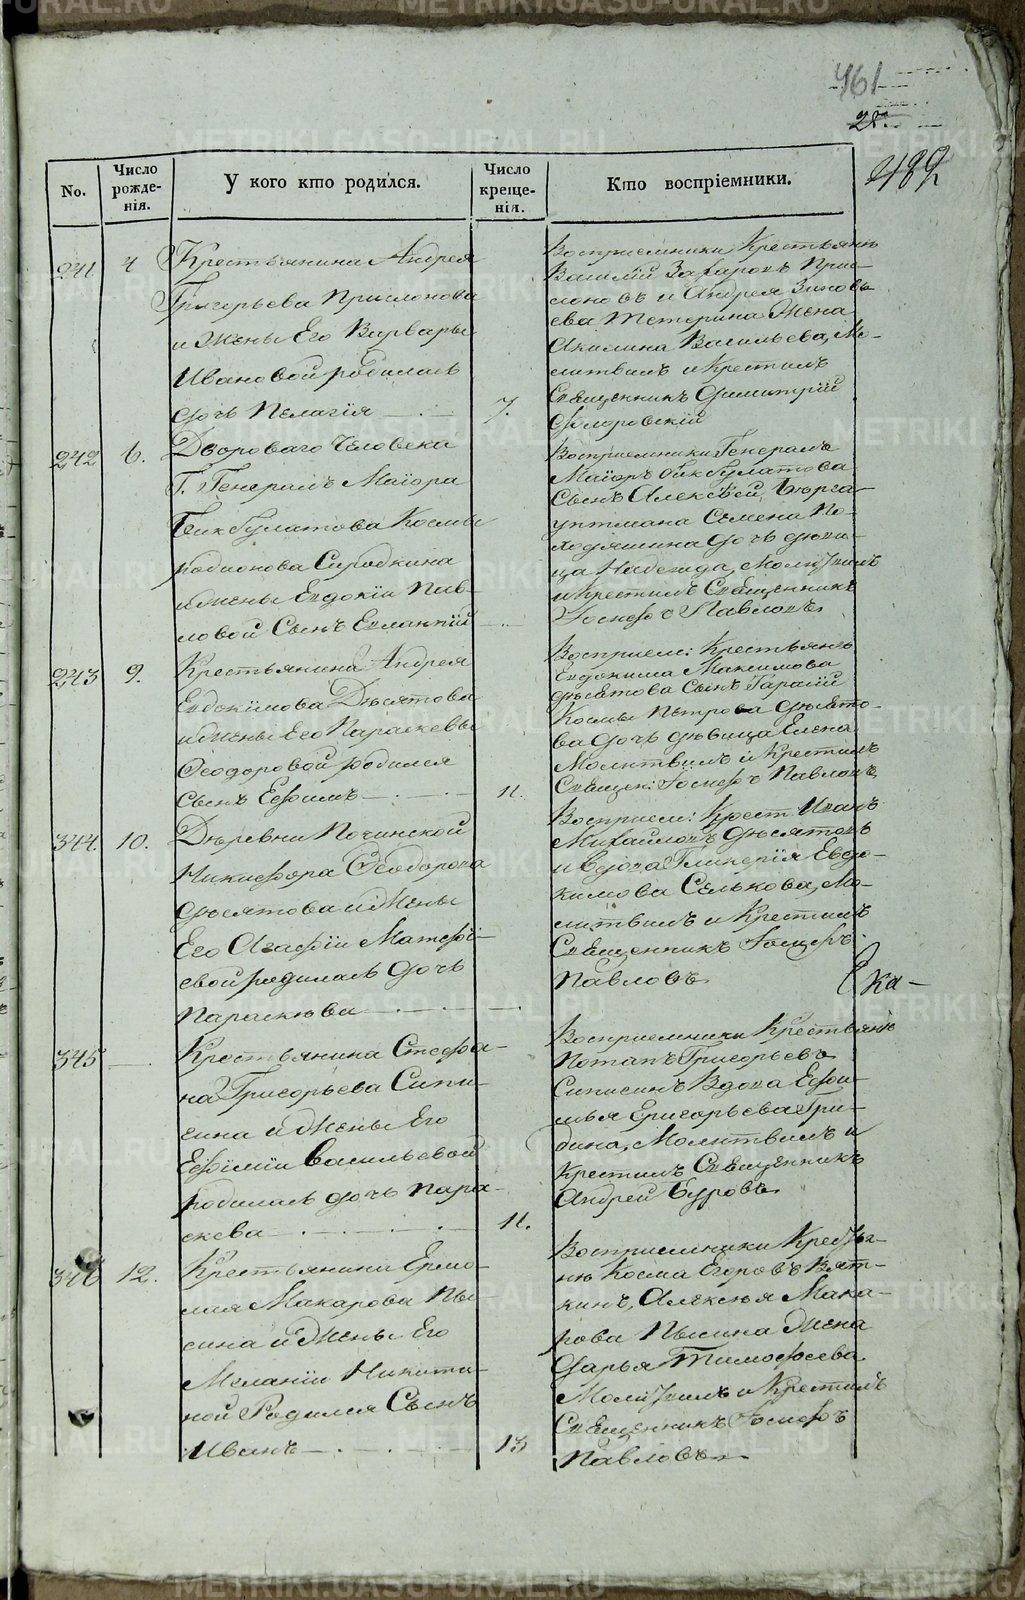 461
28.
489
No.
Число рожде-нія.
У кого кто родился.
Число креще-нія.
Кто воспріемники.
241
4
Крестьянина Андрея
Григорьева Прислонова
и Жены Его Варвары
Ивановой родилась
дочь Пелагія
7.
Восприемники Крестьянъ
Василій Захаровъ Прис-
лоновъ и Андрея Зиновь
ева Тетерина Жена
Акилина Васильева, Мо-
литвилъ и Крестилъ
Священникъ Димитрій
Флоровскій
242
6.
Двороваго Человека
Г. Генералъ Маіора
Бикбулатова Космы
родионова Сиродкина
и Жены Евдокіи Пав-
ловой Сынъ Евлампій
Восприемники Генералъ
Маіоръ Бикбулатова
Сынъ Алексѣй,
Семена По-
ходяшина дочь деви-
ца Надежда, Молитвилъ
и Крестилъ Священникъ
Іосифъ Павловъ
243
9.
Крестьянина Андрея
Евдокимова Десятова
и Жены Его Параскевы
Феодоровой родился
Сынъ Ефимъ
11.
Восприем: Крестьянъ
Евдокима Максимова
десятова Сынъ Гарасій
Космы Петрова десято-
ва дочь девица Елена
Молитвилъ и Крестилъ
Священ: Іосифъ Павловъ
344.
10.
Деревни Починской
Никифора Феодорова
десятова и Жены
Его Агафіи Матфі-
евой родилась дочь
Параскева
Восприем: Крест Иванъ
Михайловъ десятовъ
и Вдова Гликерія Евдо-
кимова Селькова, Мо-
литвилъ и Крестилъ
Священникъ Іосифъ
Павловъ
Ка-
345
Крестьянина Стефа-
на Григорьева Сипи-
сина и Жены Его
Ефиміи Васильевой
родилась дочь Пара-
скева
11.
Восприемники Крестьянъ
Потапъ Григорьевъ
Сиписинъ Вдова Ефи-
мья Григорьева Гри-
бина, Молитвилъ и
Крестилъ Священникъ
Андрей Буровъ
346
12.
Крестьянина Ермо-
лая Макарова Пы-
сина и Жены Его
Меланіи Никити-
ной Родился Сынъ
Иванъ
13
Восприемники Крестья-
нъ Косма Егоровъ Вят-
кинъ, Алексея Мака-
рова Пысина Жена
Дарья Тимофеева
Молитвилъ и Крестилъ
Священникъ Іосифъ
Павловъ
METRIKI.GASO-URAL.RU